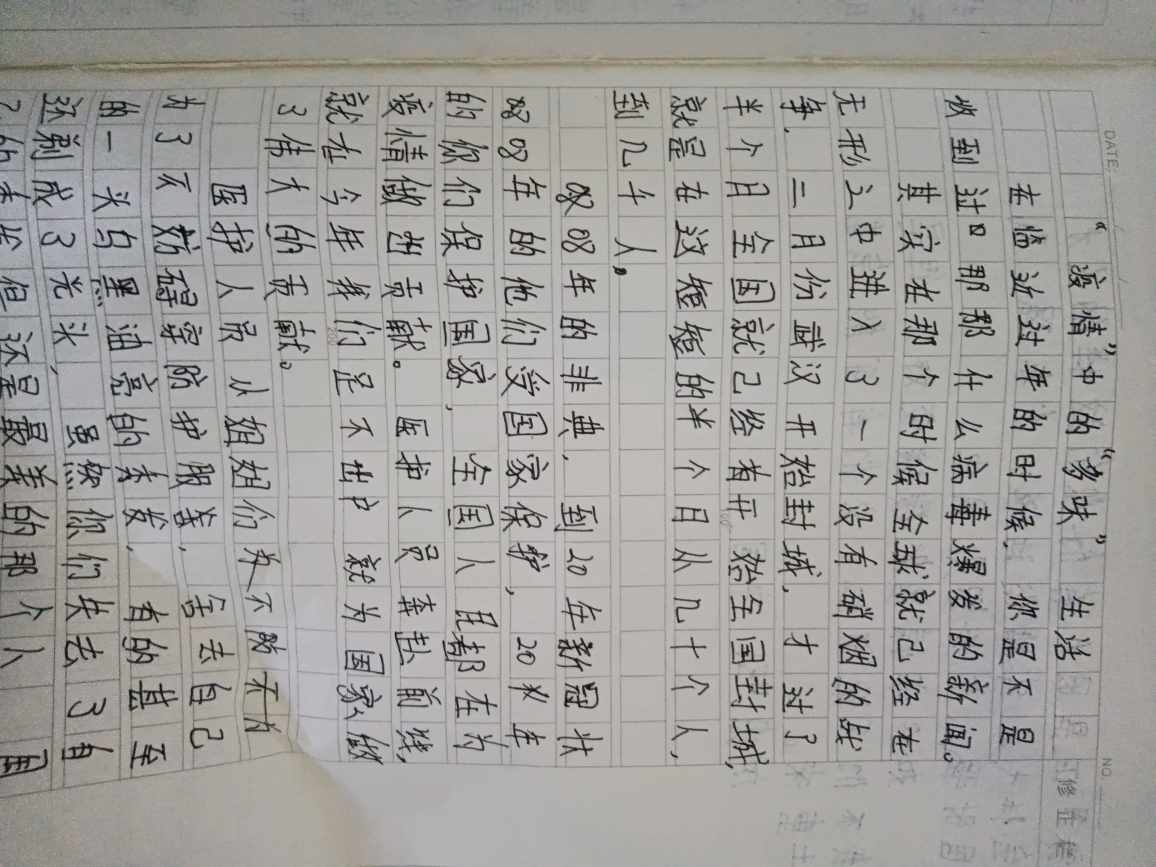 DATE
NO
修正栏
“疫情”中的“多味”生活
在临近过年的时候，你是不是
收到过口那那什么病毒爆发的新闻。
其实在那个时候全球就已经在
无形之中进入了一个没有硝烟的战
争，二月份武汉开始封城，才过了
半个月全国就已经有开始全国封城，
就是在这短短的半个月从几十个人，
到几千人。
08年的非典，到20年新冠状
08年的他们受国家保护，20年
的你们保护国家，全国人民都在为
疫情做出贡献。医护人员奔赴前线，
就在今年我们足不出户就为国家做
了伟大的贡献。
医护人员从姐姐们
为了不妨碍穿防护服美，舍去自己
的一头乌黑油亮的秀发，有的甚至
还剃成了光头，虽然你们失去了自
但还是最美的那个人